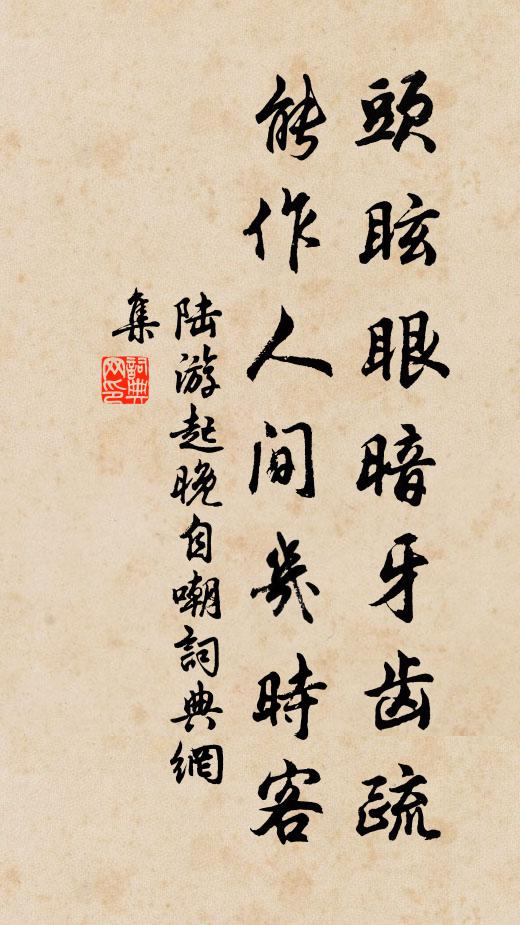 頭眩眼暗牙齿疏
能作人间幾時客
陆游起晚自嘲詞典網
集
詞典网印